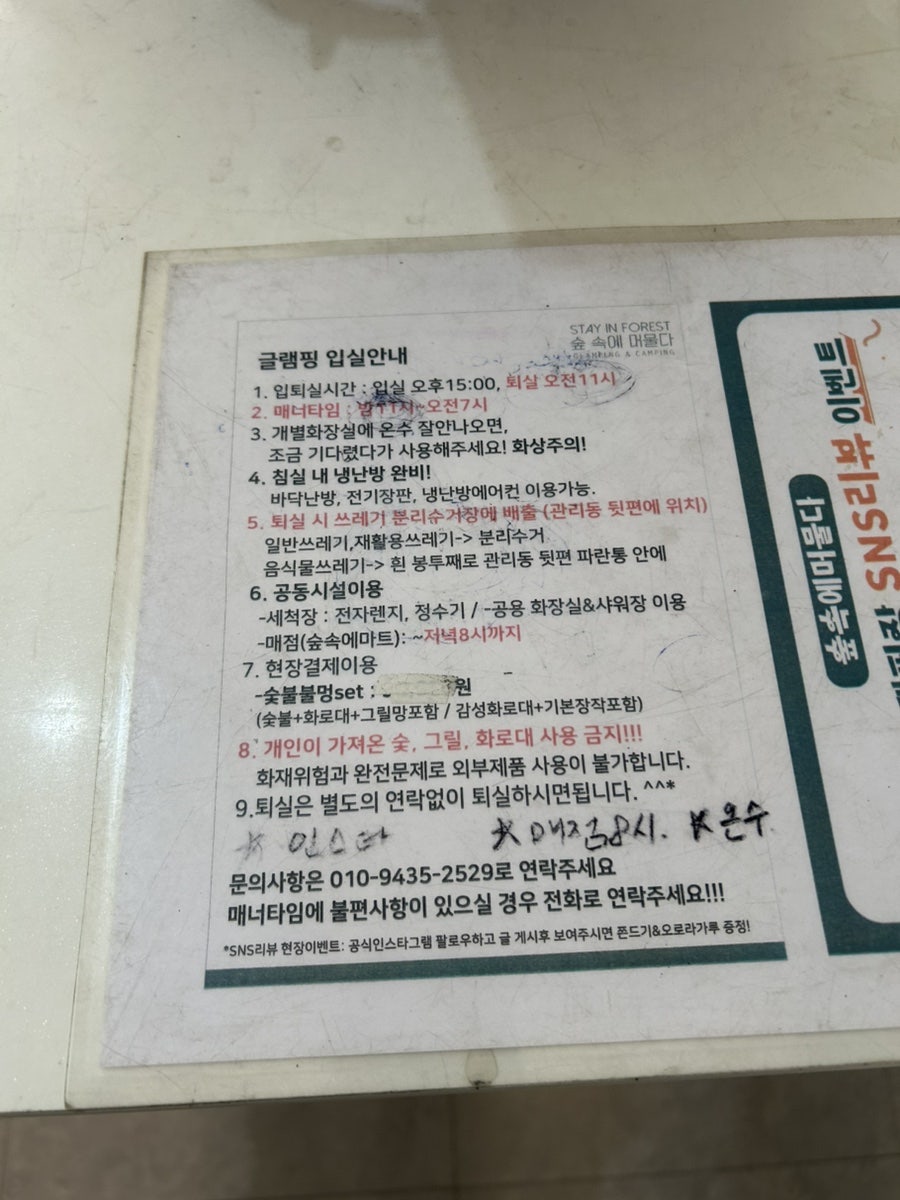 STAY IN FOREST
숲 속에 머물다
GLAMPING & CAMPING
글램핑 입실안내
1. 입퇴실시간 : 입실 오후15:00, 퇴실 오전11시
2. 매너타임 : 밤11시~오전7시
3. 개별화장실에 온수 잘안나오면,
조금 기다렸다가 사용해주세요! 화상주의!
4. 침실 내 냉난방 완비!
바닥난방, 전기장판, 냉난방에어컨 이용가능.
5. 퇴실 시 쓰레기 분리수거장에 배출 (관리동 뒷편에 위치)
일반쓰레기,재활용쓰레기-> 분리수거
음식물쓰레기-> 흰 봉투째로 관리동 뒷편 파란통 안에
6. 공동시설이용
-세척장 : 전자렌지, 정수기 / -공용 화장실&샤워장 이용
-매점(숲속에마트): ~저녁8시까지
7. 현장결제이용
-숯불불멍set : 원
(숯불+화로대+그릴망포함 / 감성화로대+기본장작포함)
8. 개인이 가져온 숯, 그릴, 화로대 사용 금지!!!
화재위험과 완전문제로 외부제품 사용이 불가합니다.
9.퇴실은 별도의 연락없이 퇴실하시면됩니다. ^^*
* 인스타 * 매점8시. * 온수
문의사항은 010-9435-2529로 연락주세요
매너타임에 불편사항이 있으실 경우 전화로 연락주세요!!!
*SNS리뷰 현장이벤트: 공식인스타그램 팔로우하고 글 게시후 보여주시면 쫀드기&오로라가루 증정!
숲속에머물다
SNS리뷰 이벤트